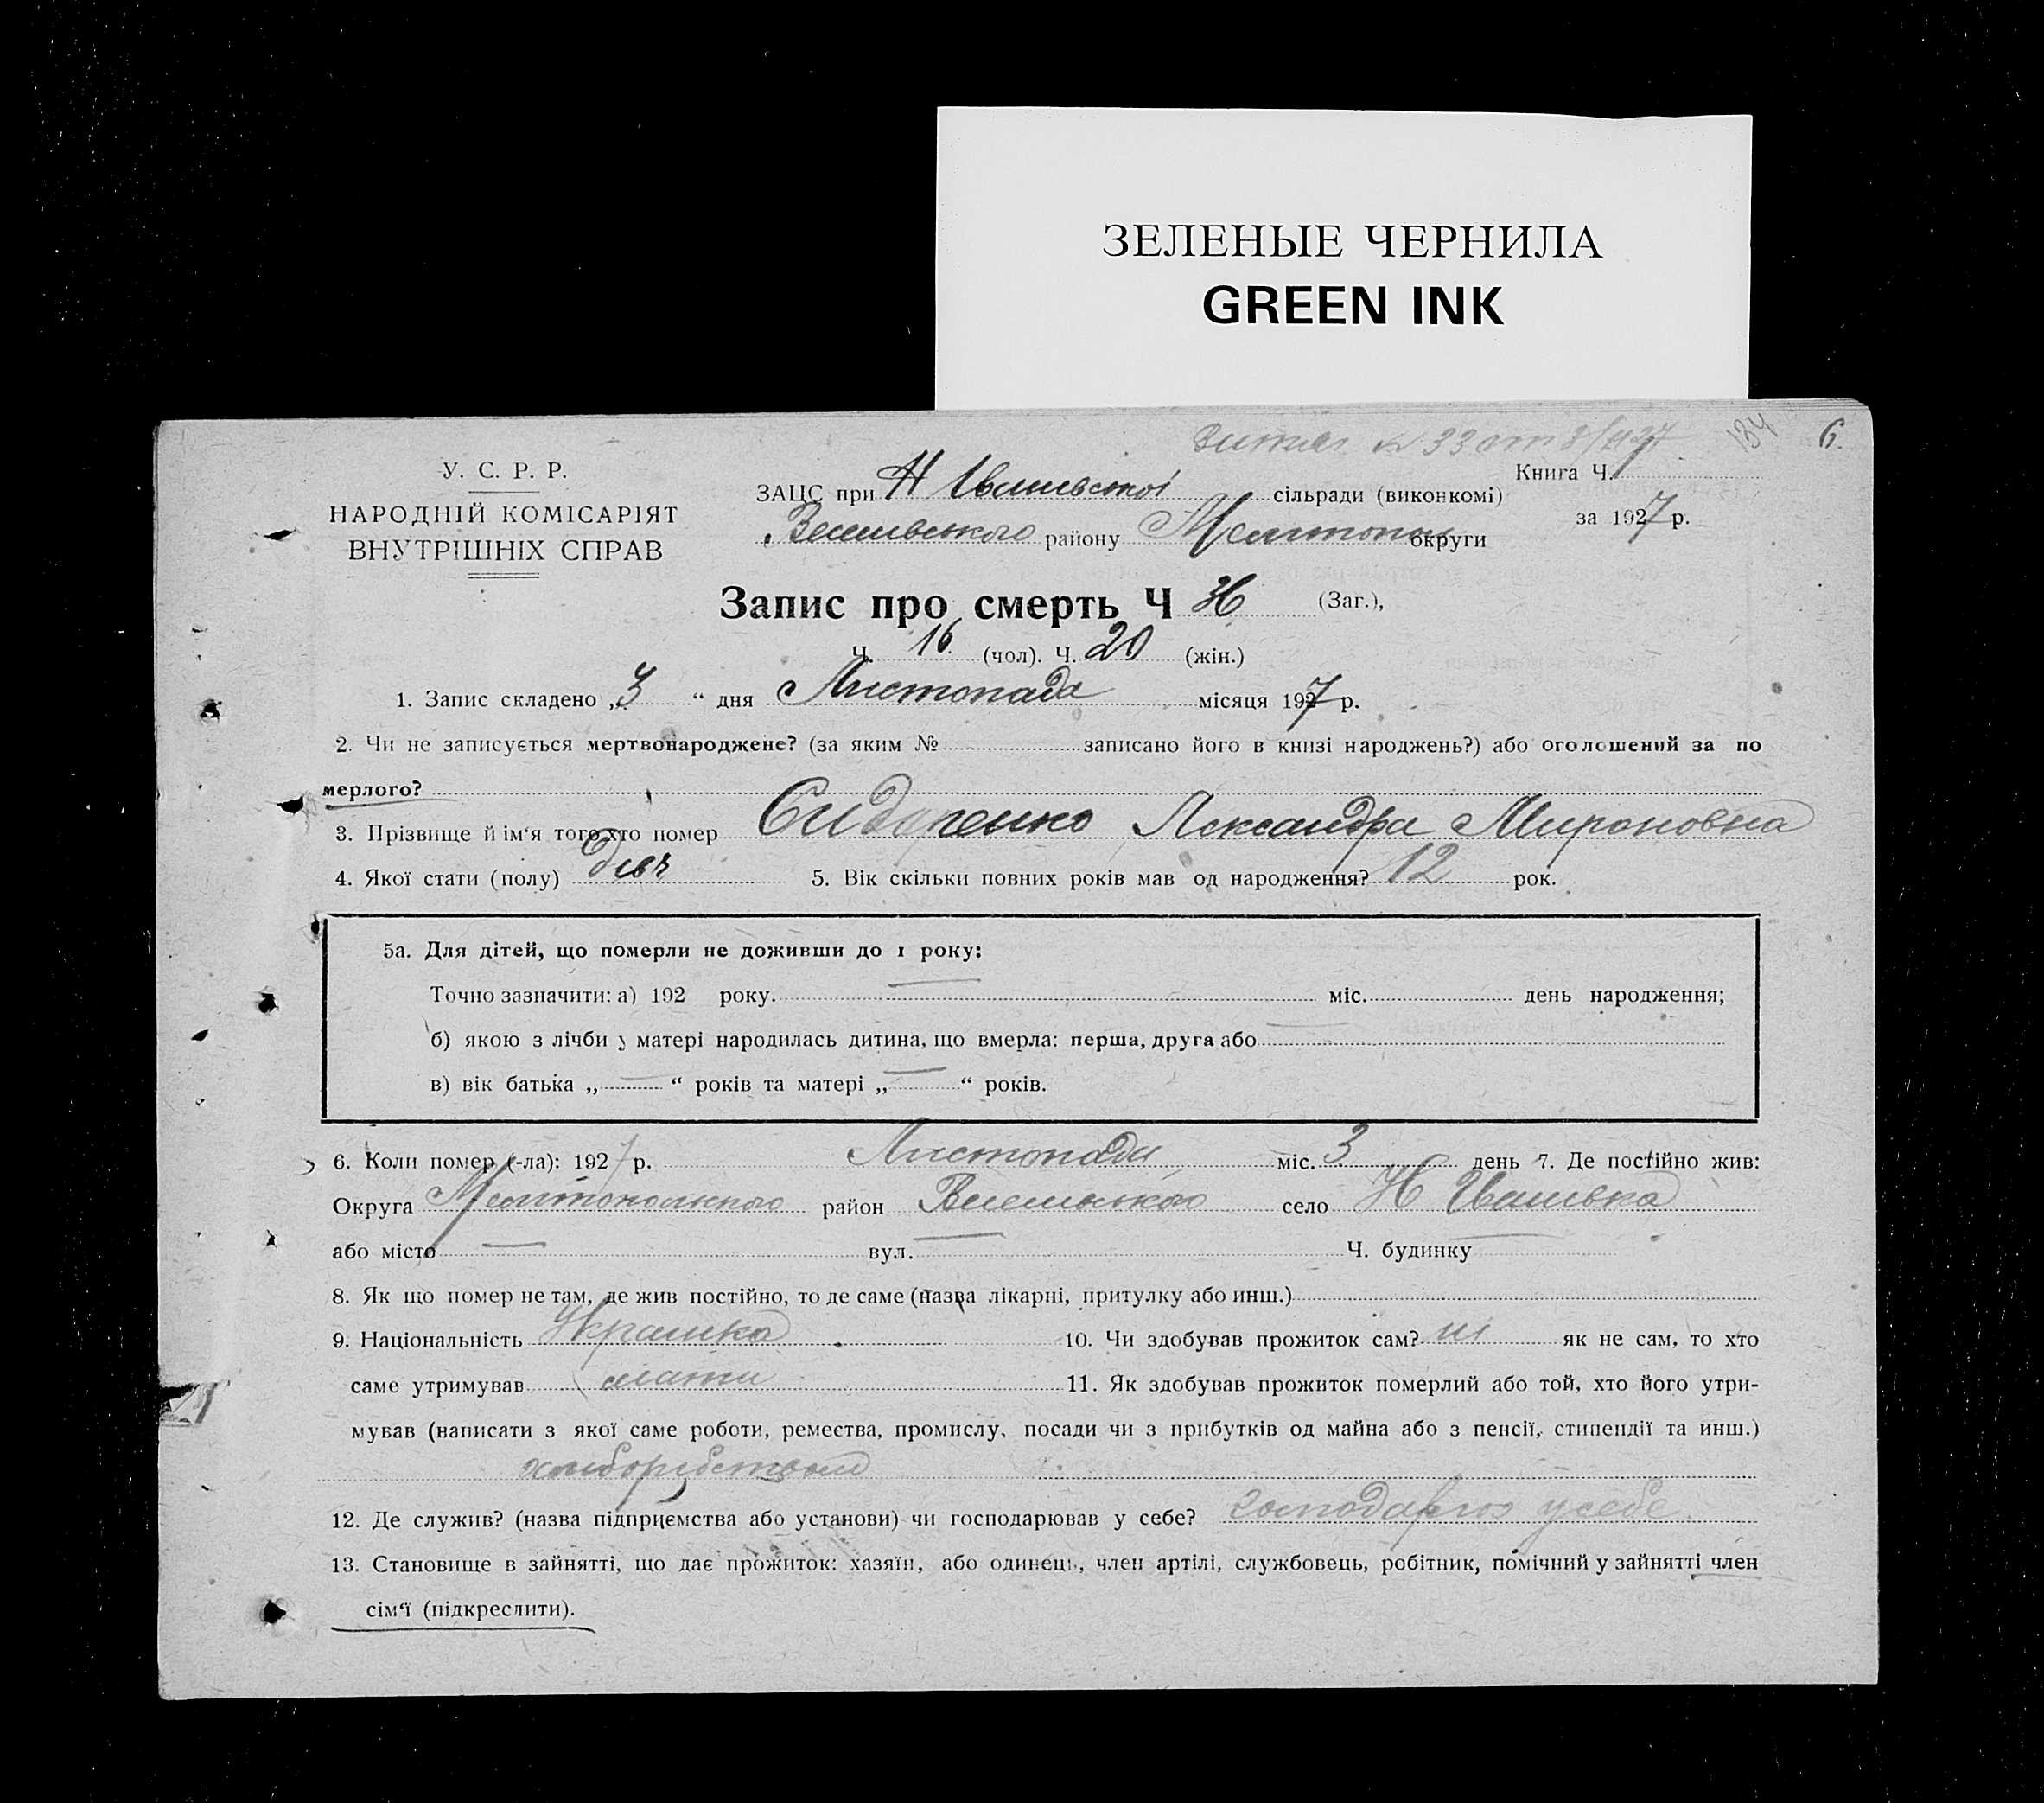 ЗЕЛЕНЫЕ ЧЕРНИЛА
GREEN INK
Витяг № 33 от 8/ 27 134 6.
У. С. Р. Р.
НАРОДНІЙ КОМІСАРІЯТ
ВНУТРІШНІХ СПРАВ
Книга Ч.
ЗАЦС при Н Іванівської сільради (виконкомі)
за 1927 р.
району Мелітопол округи
Запис про смерть Ч 36 (Заг.),
Ч. 16 (чол). Ч. 20 (жін.)
1. Запис складено „3 “ дня Листопада місяця 1927 р.
2. Чи не записується мертвонароджене? (за яким № записано його в книзі народжень?) або оголошений за по
мерлого?
3. Прізвище й ім‘я того хто помер Сидоренко Александра Мироновна
4. Якої стати (полу) дівч 5. Вік скільки повних років мав од народження? 12 рок.
5а. Для дітей, що померли не доживши до 1 року:
Точно зазначити: а) 192 року. — міс. день народження;
б) якою з лічби у матері народилась дитина, що вмерла: перша, друга або —
в) вік батька „ — “ років та матері „ — “ років.
6. Коли помер (-ла): 1927 р. Листопада міс. 3 день 7. Де постійно жив:
Округа Мелітопольского район село Н Іванівка
або місто — вул. — Ч. будинку —
8. Як що помер не там, де жив постійно, то де саме (назва лікарні, притулку або инш.)
9. Національність Украинка 10. Чи здобував прожиток сам? ні як не сам, то хто
саме утримував мати 11. Як здобував прожиток померлий або той, хто його утри-
мував (написати з якої саме роботи, ремества, промислу, посади чи з прибутків од майна або з пенсії, стипендії та инш.)
хліборобством
12. Де служив? (назва підприємства або установи) чи господарював у себе? господарює у себе
13. Становище в зайнятті, що дає прожиток: хазяїн, або одинець, член артілі, службовець, робітник, помічний у зайнятті член
сім‘ї (підкреслити).